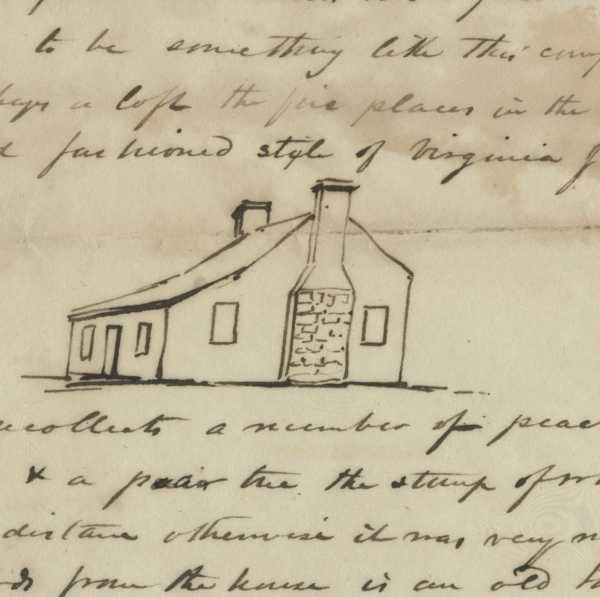 to be something like this
a loft the fire places in the
fashioned style of Virginia
recollects a number of
& a pear tree the stump of
distance otherwise it was very
from the house is an old